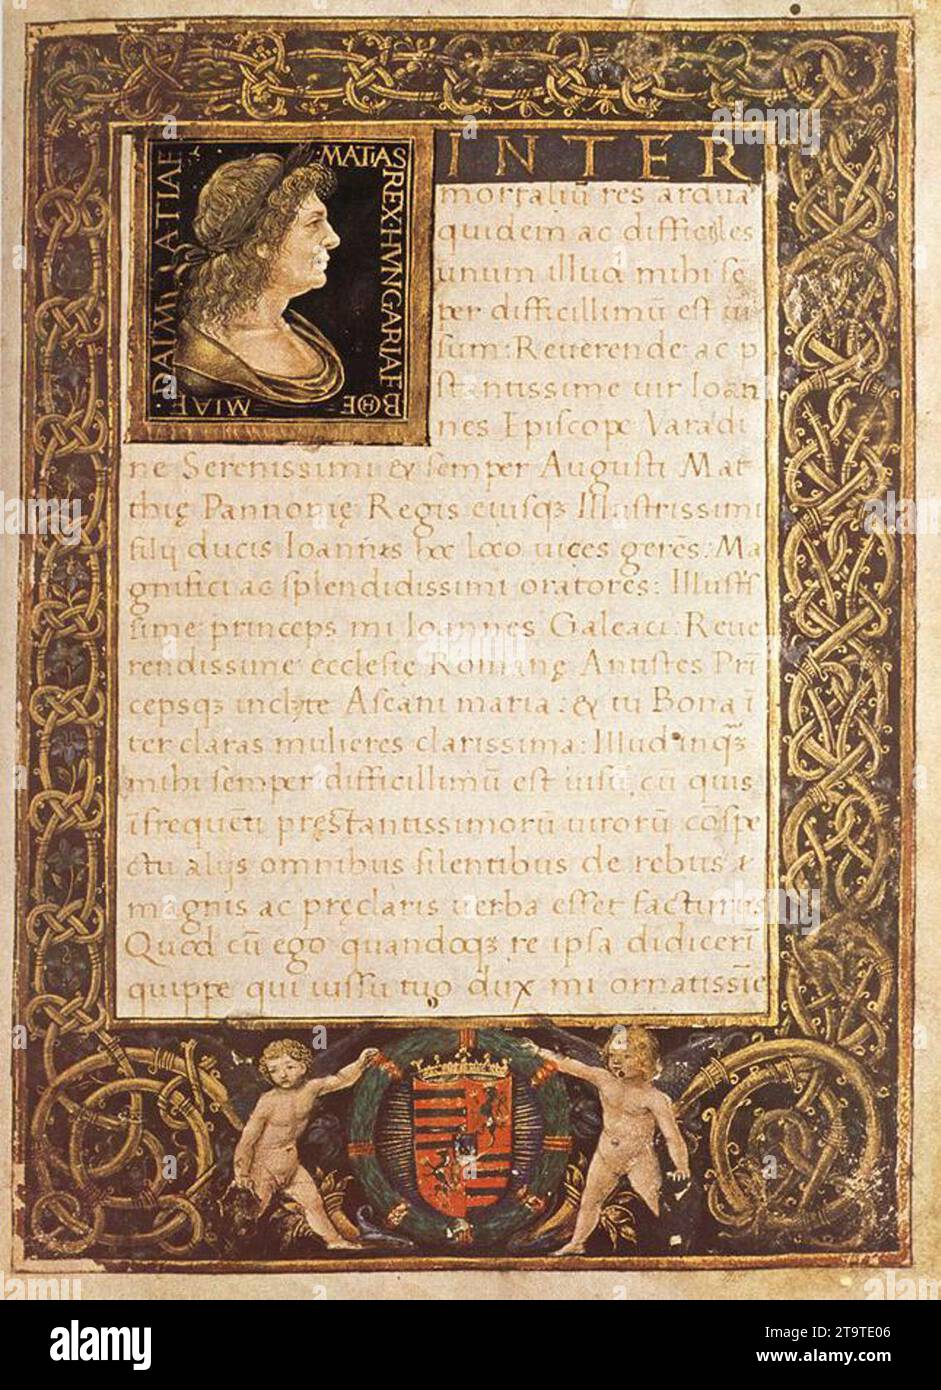 MATIAS
REX·HVNGARIAE
BOHE
MIAE·
DALMATIAE
INTER
mortaliũ res ardua
quidem ac difficiles
unum illud mihi sẽ
per difficillimũ est ui
sum: Reuerende ac p
stantissime uir Ioan
nes Episcope Varadi
ne Serenissimi & semper Augusti Mat
thię Pannonię Regis eiusqꝫ Illustrissimi
filij ducis Ioannis hoc loco uices gerẽs: Ma
gnifici ac splendidissimi oratores: Illustris
sime princeps mi Ioannes Galeaci: Reue
rendissime ecclesię Romanę Antistes Pri
cepsqꝫ inclyte Ascani maria: & tu Bona ĩ
ter claras mulieres clarissima: Illud inqꝫ
mihi semper difficillimũ est uisũ, cũ quis
ĩ frequẽti pręstantissimorũ uirorũ cõspe
ctu alijs omnibus silentibus de rebus
magnis ac pręclaris uerba esset facturus
Quod cũ ego quandoqꝫ re ipsa didicerĩ
quippe qui iussu tuo dux mi ornatissĩe
alamy
2T9TE06
www.alamy.com